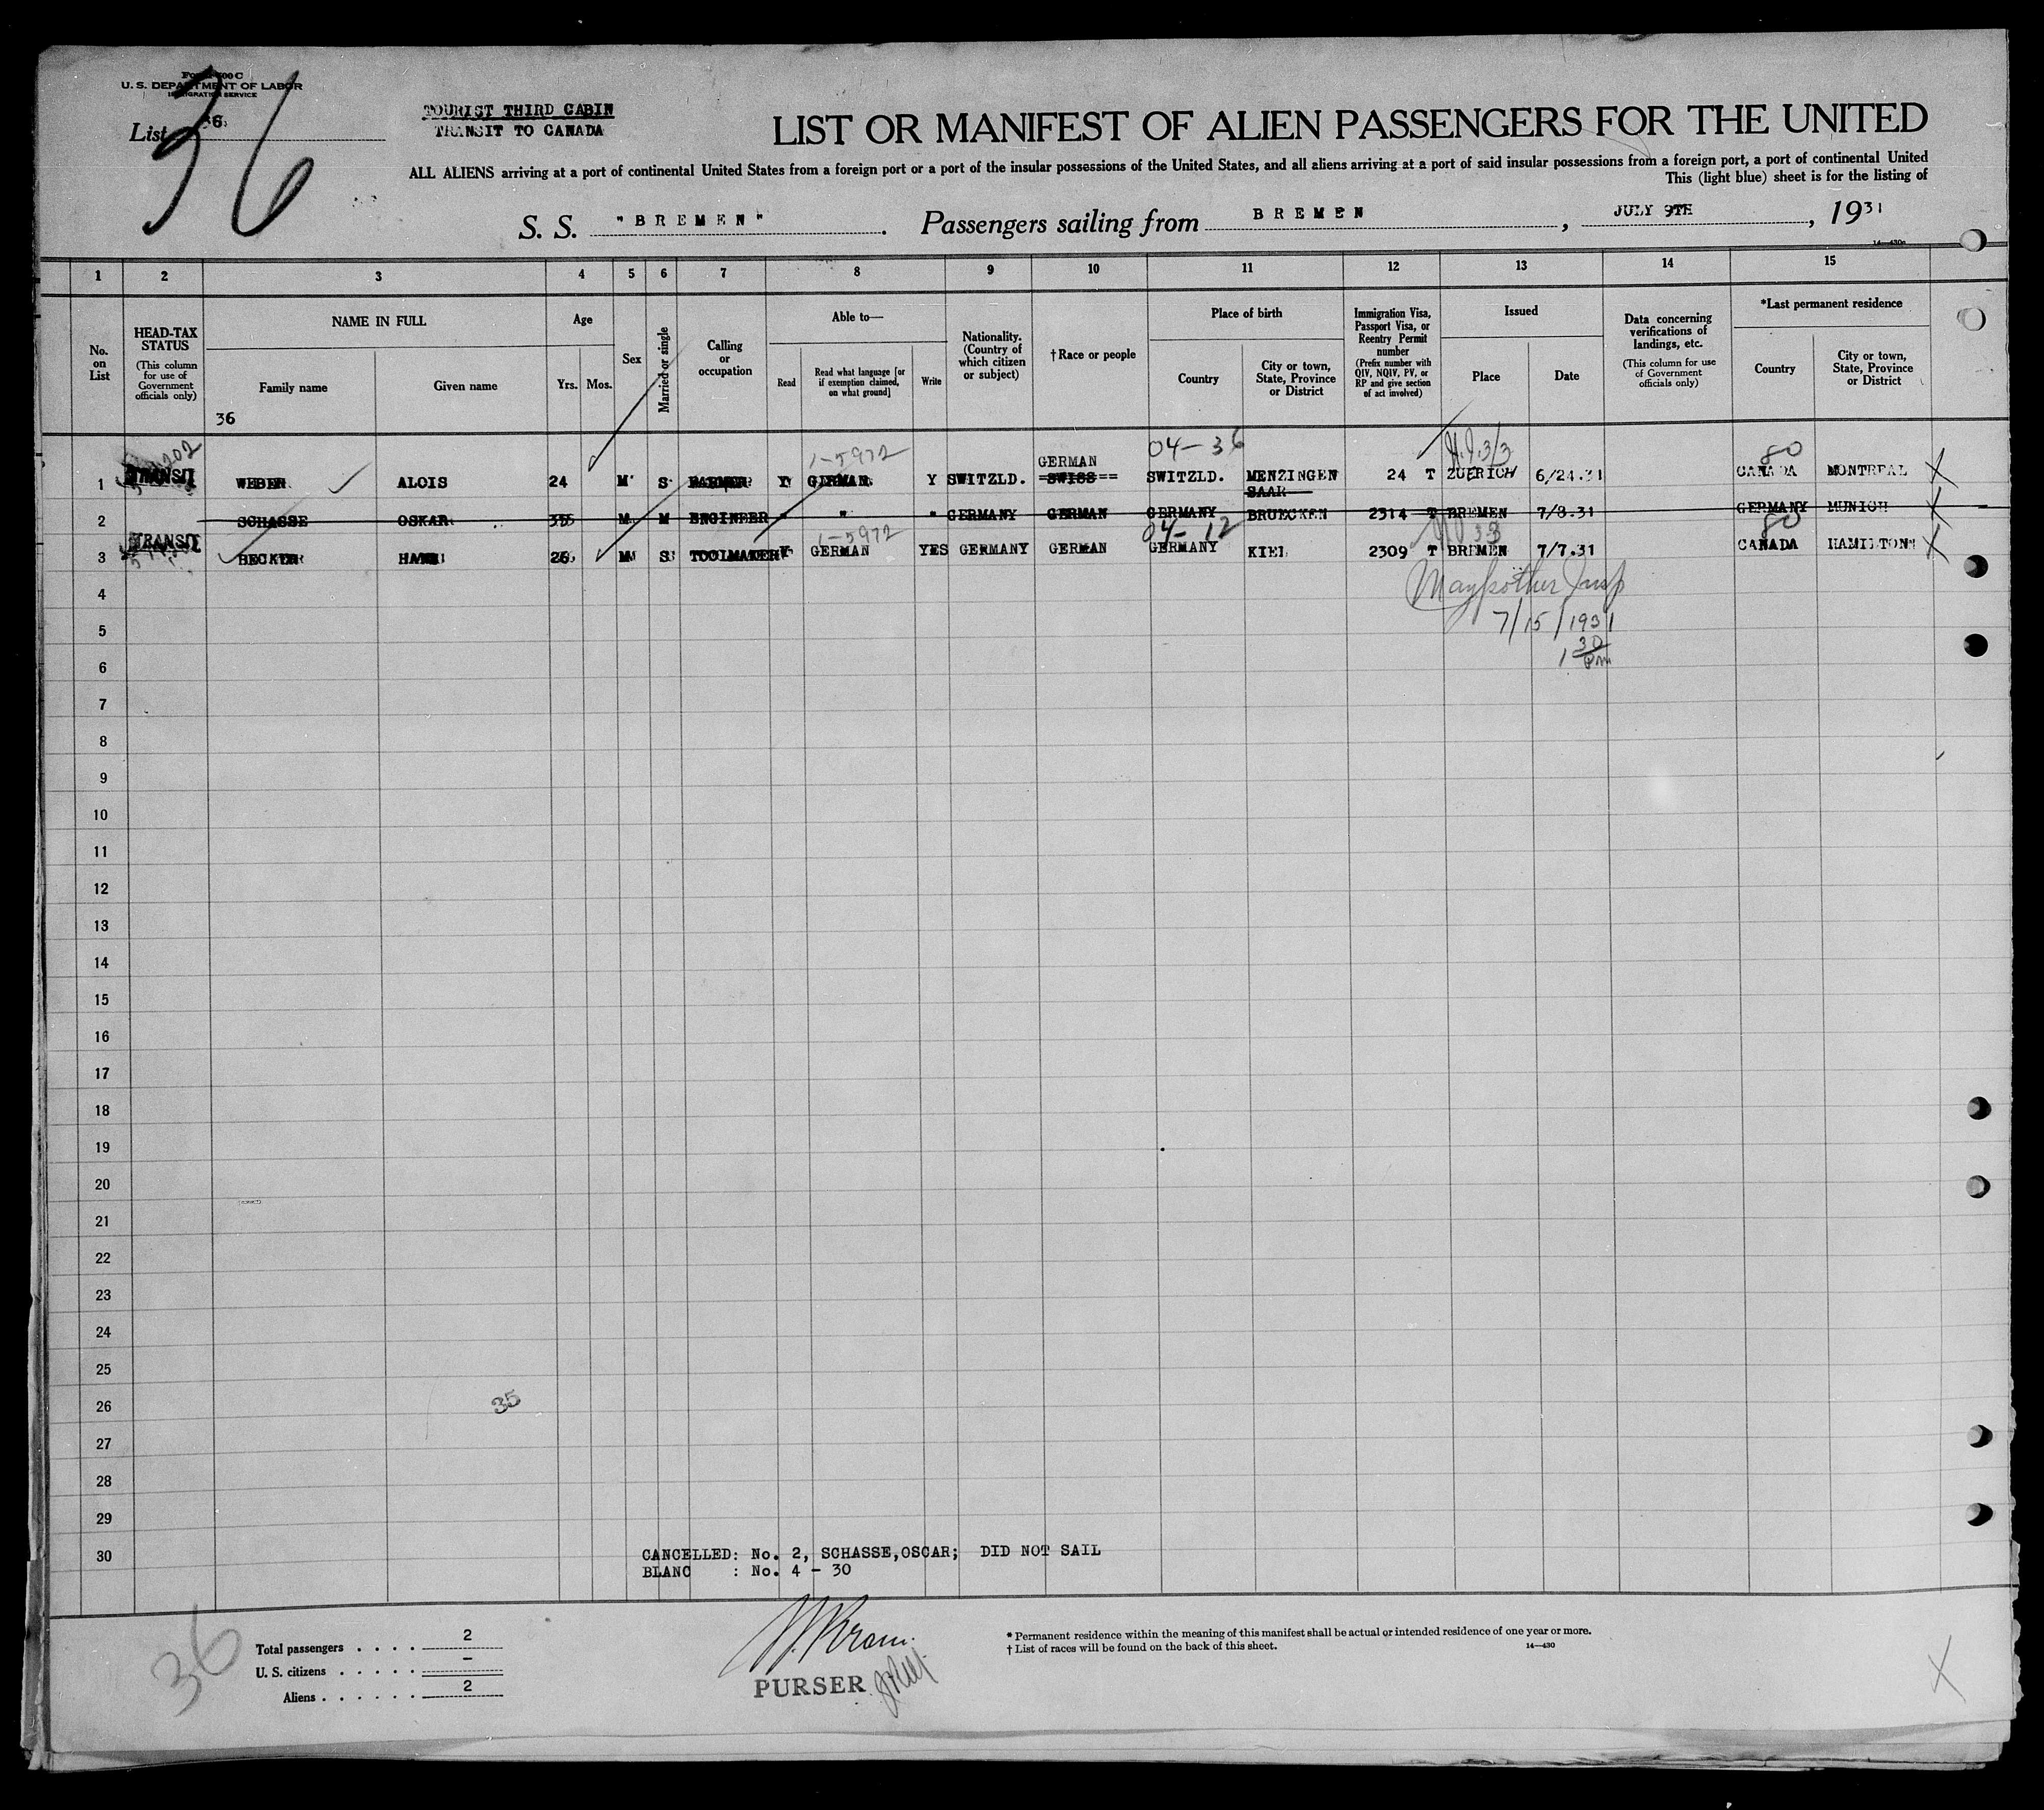 U. S. DEPARTMENT OF LABOR
IMMIGRATION SERVICE
36
List 36
TOURIST THIRD CABIN
TRANSIT TO CANADA
LIST OR MANIFEST OF ALIEN PASSENGERS FOR THE UNITED
ALL ALIENS arriving at a port of continental United States from a foreign port or a port of the insular possessions of the United States, and all aliens arriving at a port of said insular possessions from a foreign port, a port of continental United
This (light blue) sheet is for the listing of
S. S. "BREMEN". Passengers sailing from BREMEN, JULY 9TH, 1931
1 2 3 4 5 6 7 8 9 10 11 12 13 14 15
No. on List
HEAD-TAX STATUS
(This column for use of Government officials only)
NAME IN FULL
Family name
Given name
36
Age
Yrs. Mos.
Sex
Married or single
Calling or occupation
Able to—
Read
Read what language [or if exemption claimed, on what ground]
Write
Nationality. (Country of which citizen or subject)
†Race or people
Place of birth
Country
City or town, State, Province or District
Immigration Visa, Passport Visa, or Reentry Permit number
(Prefix number with QIV, NQIV, PV, or RP and give section of act involved)
Issued
Place
Date
Data concerning verifications of landings, etc.
(This column for use of Government officials only)
*Last permanent residence
Country
City or town, State, Province or District
1-5972 04-36 80
GERMAN
1 TRANSIT WEBER ALOIS 24 M S FARMER Y GERMAN Y SWITZLD. SWISS SWITZLD. MENZINGEN 24 T ZUERICH 6/24.31 CANADA MONTREAL X
SAAR
2 SCHASSE OSKAR M M ENGINEER " " " GERMANY GERMAN GERMANY BRUECKEN 2314 T BREMEN 7/8.31 GERMANY MUNICH X
1-5972 04-12 80
3 TRANSIT BECKER HANS 26 M S TOOLMAKER Y GERMAN YES GERMANY GERMAN GERMANY KIEL 2309 T BREMEN 7/7.31 CANADA HAMILTON X
4
5 7/15/1931
6 1 30 Pm
7
8
9
10
11
12
13
14
15
16
17
18
19
20
21
22
23
24
25
26 35
27
28
29
30
CANCELLED: No. 2, SCHASSE,OSCAR; DID NOT SAIL
BLANC : No. 4 - 30
36
Total passengers . . . . 2
U. S. citizens . . . . . -
Aliens . . . . . . 2
PURSER
* Permanent residence within the meaning of this manifest shall be actual or intended residence of one year or more.
† List of races will be found on the back of this sheet. 14—430
X